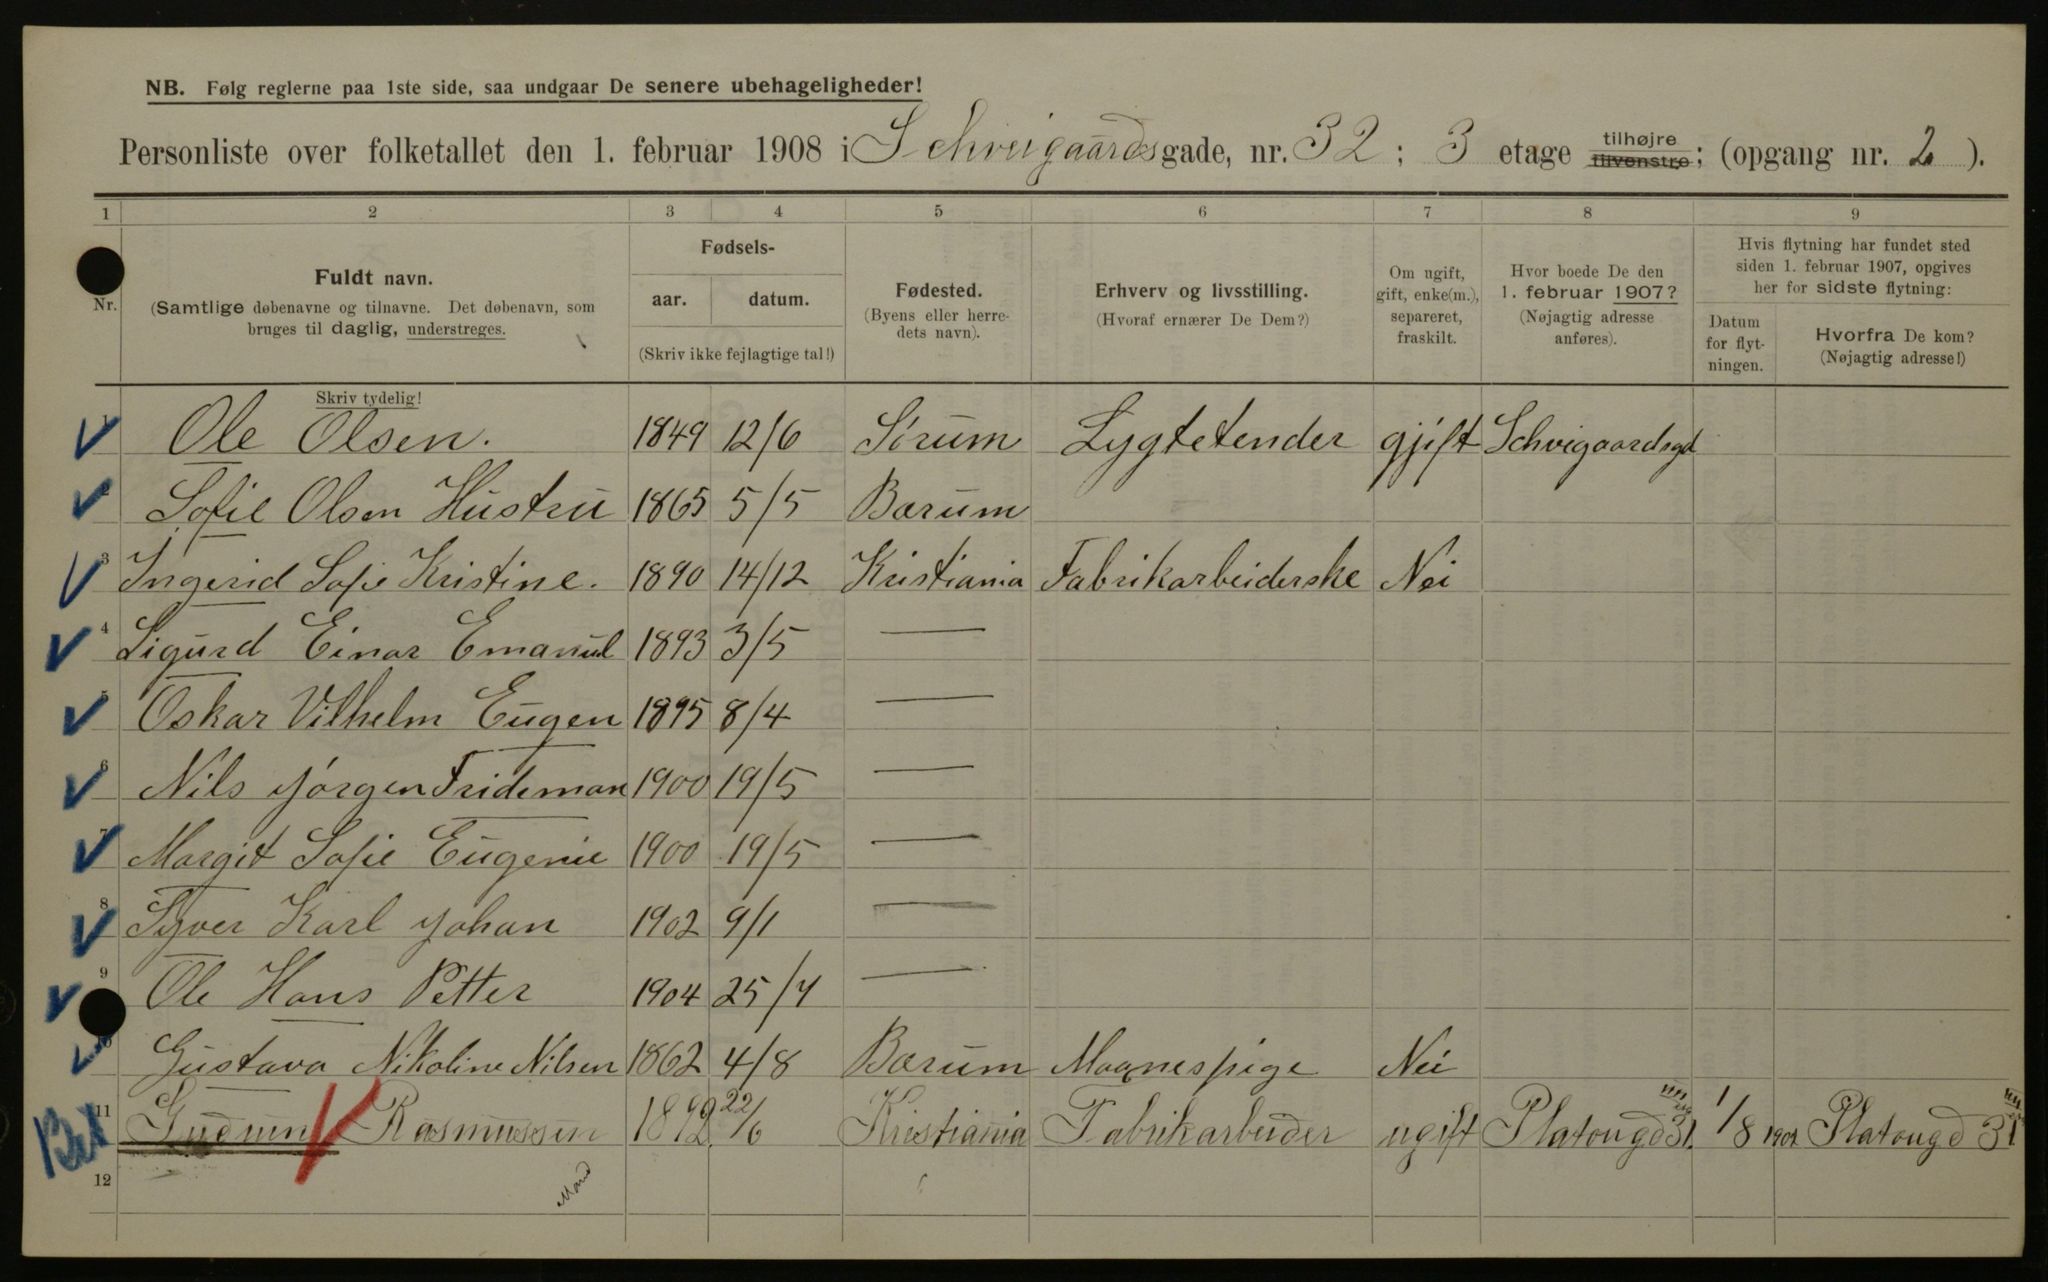 NB. Følg reglerne paa 1ste side, saa undgaar De senere ubehageligheder!
Personliste over folketallet den 1. februar 1908 i Schveigaardsgade, nr. 32; 3 etage tilhøjre tilvenstre; (opgang nr. 2).
1 2 3 4 5 6 7 8 9
Nr.
Fuldt navn.
(Samtlige døbenavne og tilnavne. Det døbenavn, som
bruges til daglig, understreges.
Fødsels-
aar. datum.
(Skriv ikke fejlagtige tal!)
Fødested.
(Byens eller herre-
dets navn).
Erhverv og livsstilling.
(Hvoraf ernærer De Dem?)
Om ugift,
gift, enke(m.),
separeret,
fraskilt.
Hvor boede De den
1. februar 1907?
(Nøjagtig adresse
anføres).
Hvis flytning har fundet sted
siden 1. februar 1907, opgives
her for sidste flytning:
Datum
for flyt-
ningen.
Hvorfra De kom?
(Nøjagtig adresse!)
Skriv tydelig!
1 Ole Olsen. 1849 12/6 Sørum Lygtetender gjift Schvigaardsgd
2 Sofie Olsen Hustru 1865 5/5 Bærum
3 Ingerid Sofie Kristine. 1890 14/12 Kristiania Fabrikarbeiderske Nei
4 Sigurd Einar Emanuel 1893 3/5 —
5 Oskar Vilhelm Eugen 1895 8/4 —
6 Nils Jørgen Frideman 1900 19/5 —
7 Margit Sofie Eugenie 1900 19/5 —
8 Syver Karl Johan 1902 9/1 —
9 Ole Hans Petter 1904 25/4 —
10 Gustava Nikoline Nilsen 1862 4/8 Bærum Maanespige Nei
11 Gudrun Rasmussen 1892 22/6 Kristiania Fabrikarbeider ugift Platougd 31 1/8 1907 Platougd 31
12